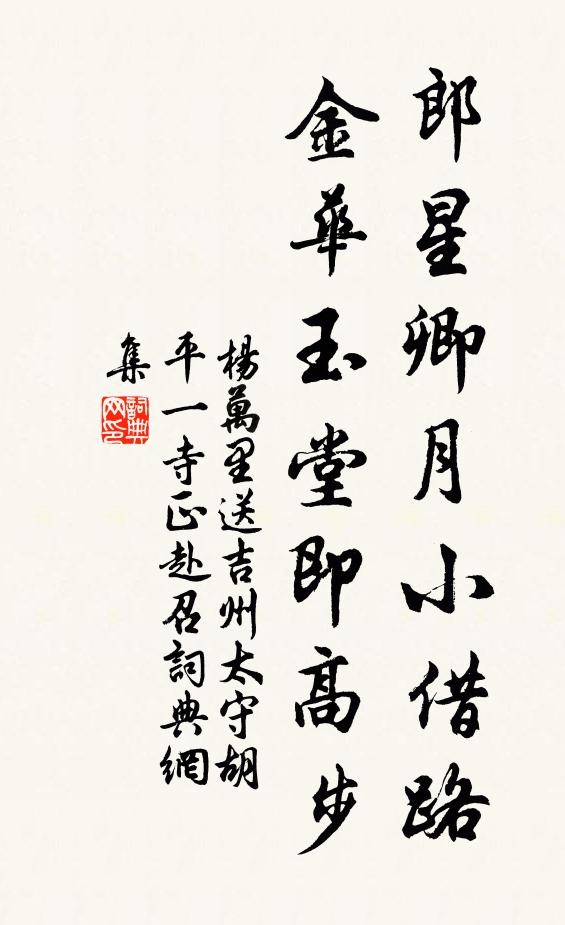 郎星卿月小借路
金華玉堂即高步
楊萬里送吉州太守胡
平一寺正赴召詞典網
集
詞典
网印